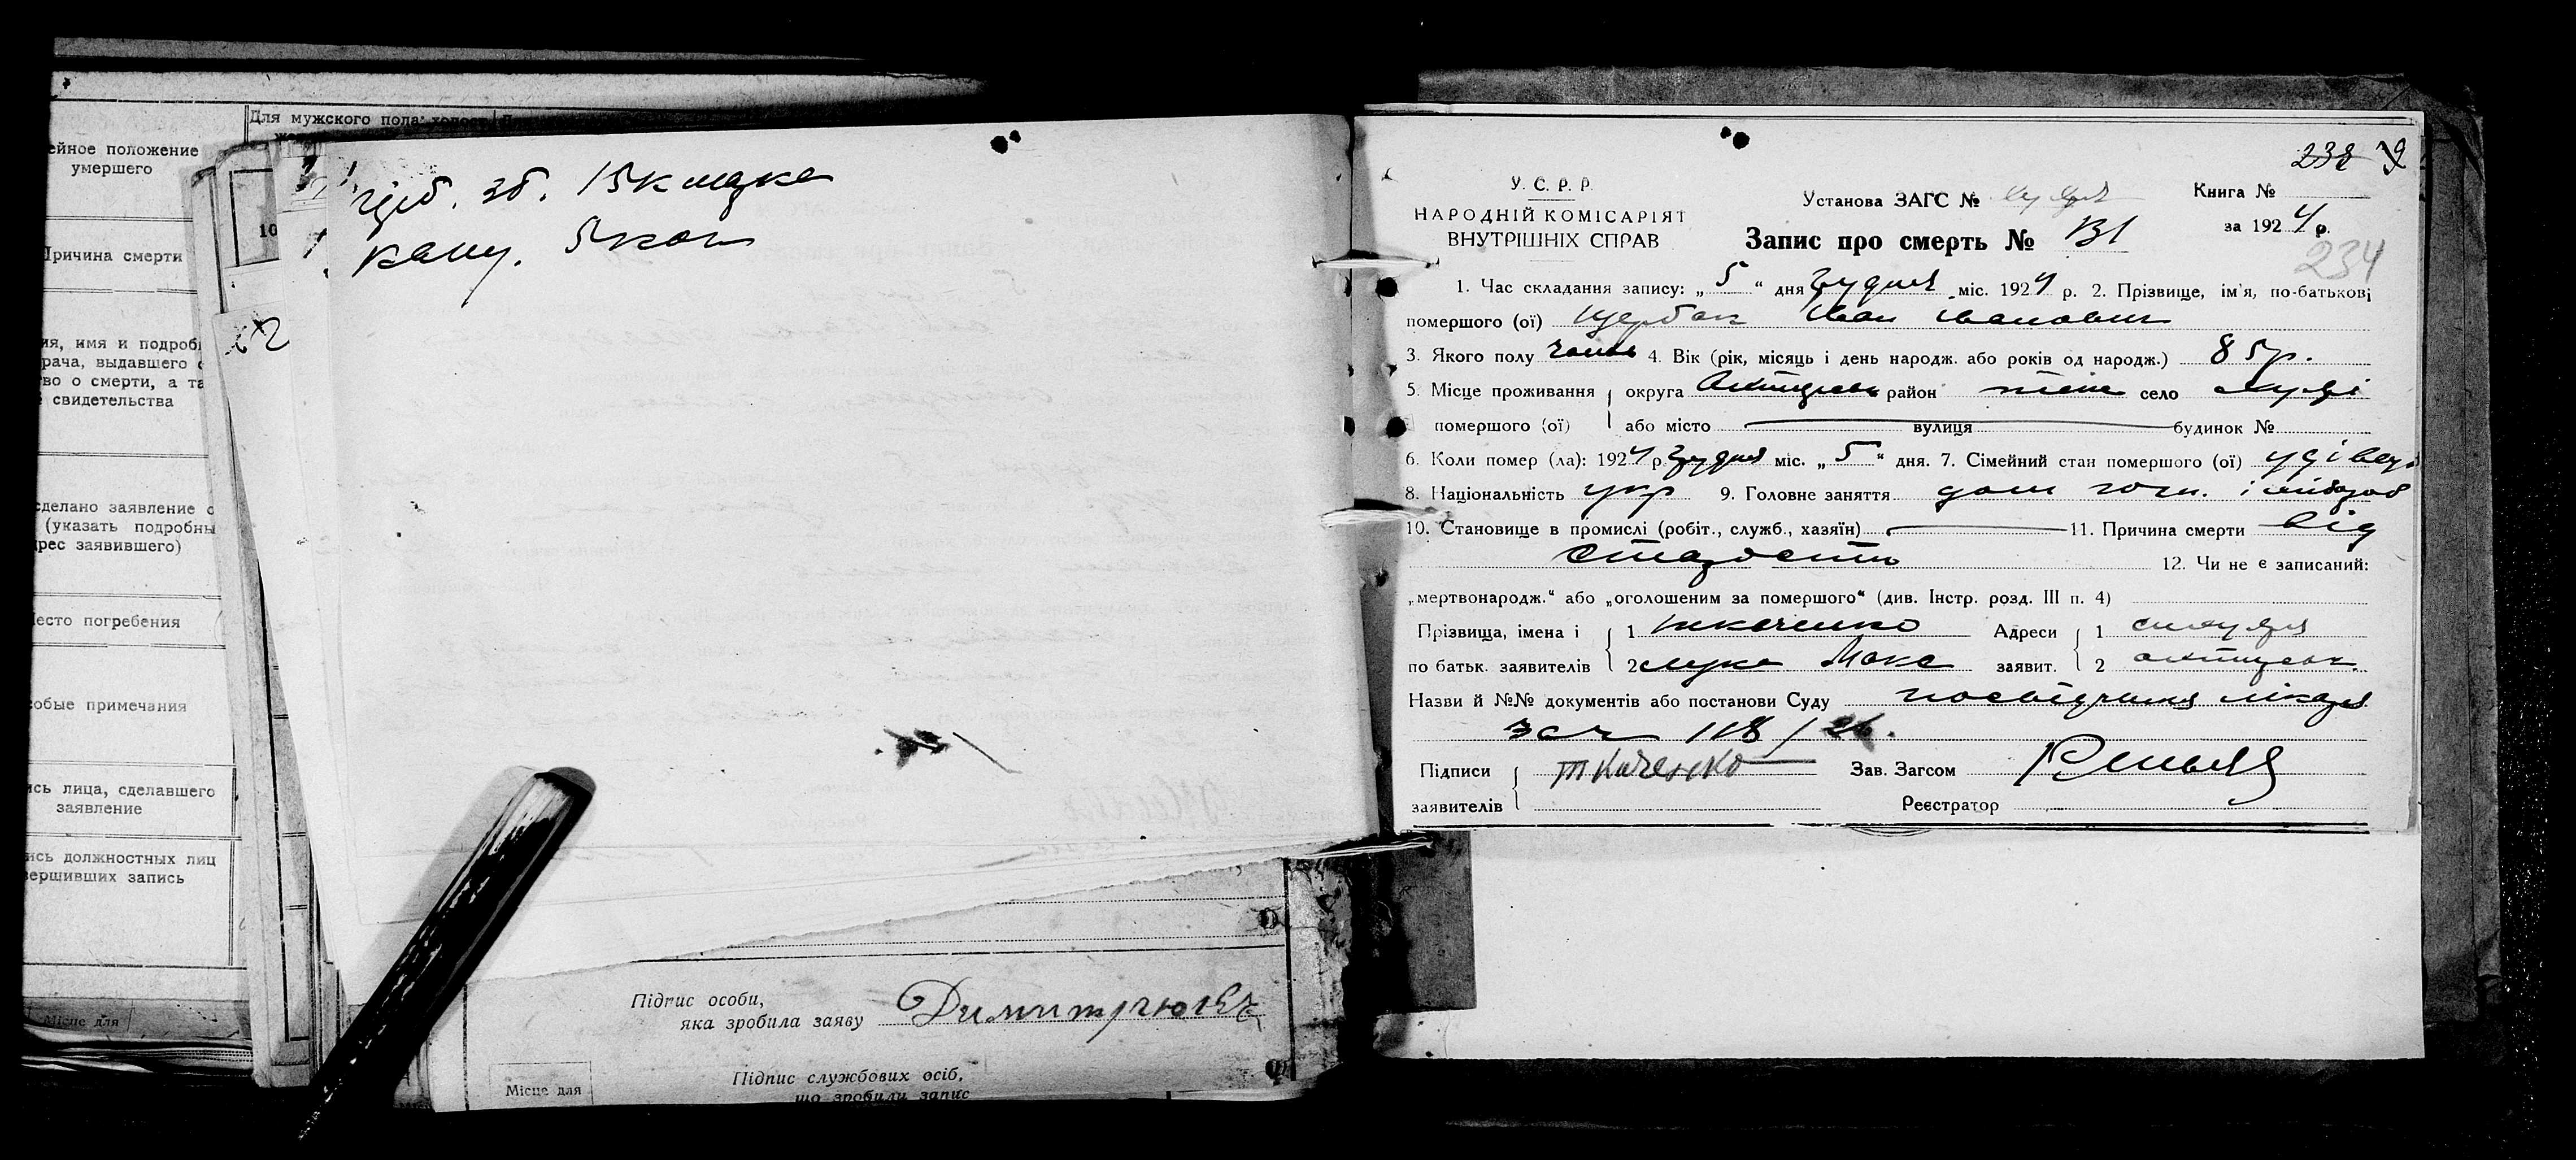 Для мужского пола:
ейное положение
умершего
10
Причина смерти
ия, имя и подроб
рача, выдавшего
во о смерти, а та
свидетельства
сделано заявление о
(указать подробны
рес заявившего)
есто погребения
собые примечания
ись лица, сделавшего
заявление
ись должностных лиц
вершивших запись
Місце для
зб. 15к
канц. 5коп
Підпис особи,
яка зробила заяву
Підпис службових осіб,
що зробили запис
Місце для
238 9
У. С. Р. Р.
НАРОДНІЙ КОМІСАРІЯТ
ВНУТРІШНІХ СПРАВ
Установа ЗАГС №
Книга №
Запис про смерть № 131
за 1924 р.
234
1. Час складання запису: „5“ дня грудня міс. 1924 р. 2. Прізвище, ім'я, по-батькові
помершого (ої) Щербак Іван Іванович
3. Якого полу чолов 4. Вік (рік, місяць і день народж. або років од народж.) 85р.
5. Місце проживання округа район село
помершого (ої) або місто вулиця будинок №
6. Коли помер (ла): 1924 р. грудня міс. „5“ дня. 7. Сімейний стан помершого (ої) удівець
8. Національність укр 9. Головне заняття
10. Становище в промислі (робіт., служб., хазяїн) 11. Причина смерти від
старости 12. Чи не є записаний:
„мертвонародж.“ або „оголошеним за помершого“ (див. Інстр. розд. III п. 4)
Прізвища, імена і 1 Ткаченко Адреси 1
по батьк. заявителів 2 Лука заявит. 2
Назви й №№ документів або постанови Суду посвідчення лікаря
за ч 118/
Підписи Ткаченко Зав. Загсом
заявителів Реєстратор